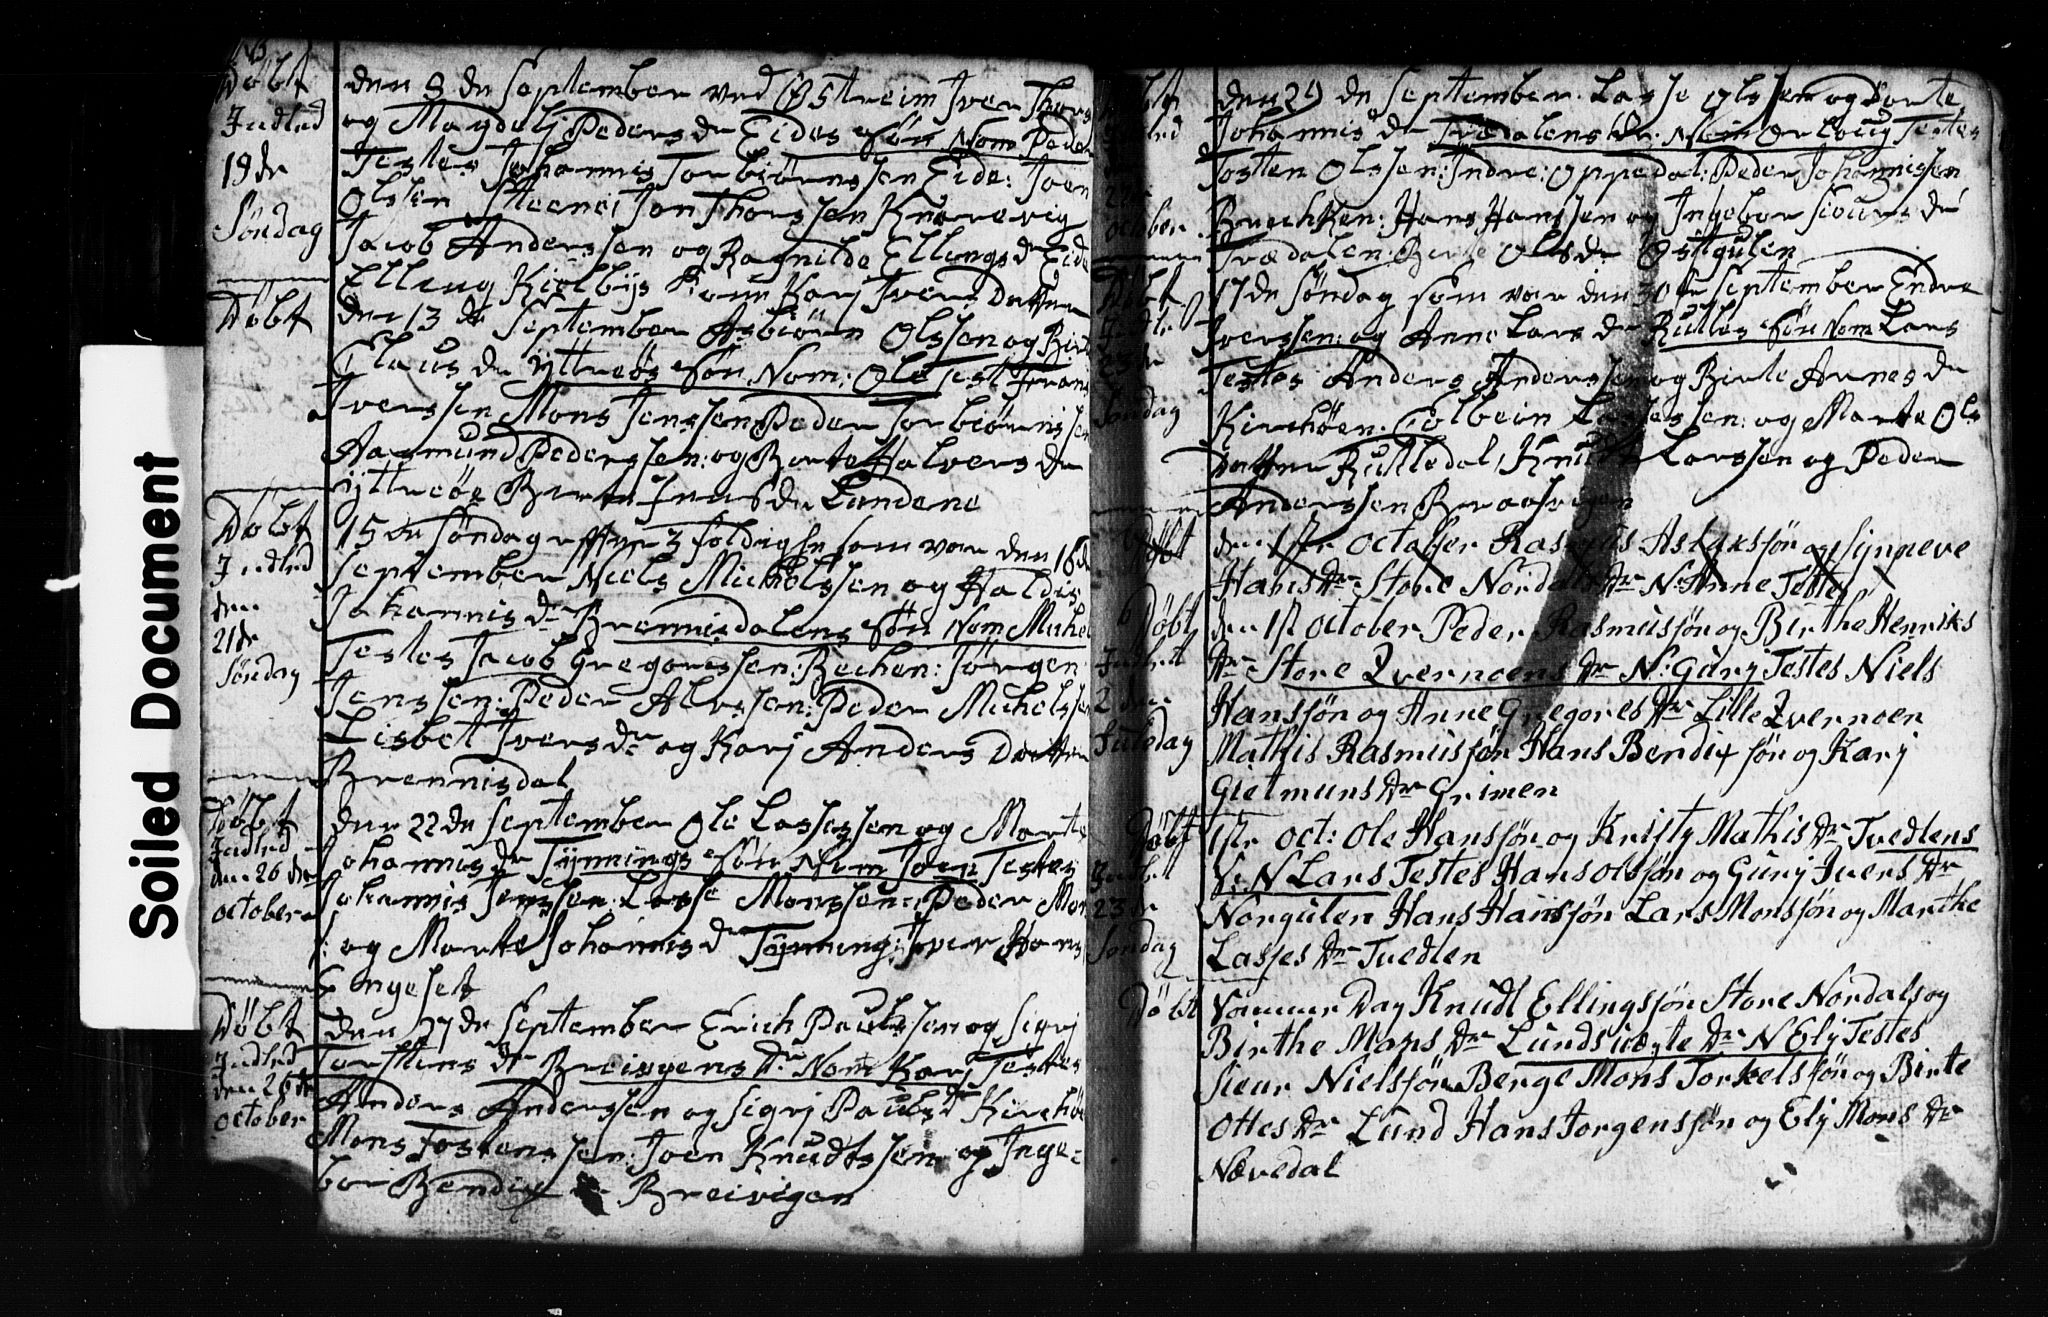 Soiled Document
Døbt
Indled
19de
Søndag
den 8 de September ved Østreim Iver Thors
og Magdeli Peders dr Eides Søn Nom Peder
Testes Johannis Torbiørnssen Eide: Joen
Olssen Steene: Jon Thorssen Knarevig
Jacob Anderssen og Ragnilde Ellings dr Eide
Elling Kiølbÿs Kone Karj Ivers Datter
Døbt
den 13 de September Asbiørn Olssen og Birte
Claus dr Ÿttreøs Søn Nom: Ole Test Frans
Iverssen Mons Jenssen Peder Torbiørnssen
Aamund Pederssen: og Barte Halvers dr
Ÿttreøe Berte Jens dr Lundene
Døbt
Indled
den
21de
Søndag
15de Søndag effter 3 foldighe som var den 16de
September Niels Michelssen og Haldis
Johannis dr Brennisdalens Søn Nom Michel
Testes Jacob Gregorissen: Rechen: Jørgen
Jenssen: Peder Alvssen: Peder Michelssen
Lisbet Ivers dr og Karj Anders Datter
Brennisdal
Døbt
Indled
den 26 de
october
den 22 de September Ole Lassessen og Marte
Johannis dr Tÿnnings Søn Nom Joen Testes
Johannis Jenssen Lasse Monssen: Peder Mon
og Marte Johannis dr Tÿnning: Iver Hans
Engeset
Døbt
Indled
den 26 de
October
den 27 de September Erich Paulssen og Sigrj
Torstens dr Breivigens dr Nom Karj Testes
Anders Anderssen og Sigrj Pauls dr Kirchøe
Mons Tostenssen: Joen Knudtssen og Inge=
bor Bendix dr Breivigen
den 29 de September Lasse Olssen og Dorte
Johannis dr Trædalens dr: Nom Testes
Tosten Olssen: Indre: Oppedal: Peder Johannissen
october
Brechken: Hans Hanssen og Ingebor Siours dr
Trædalen Berte Ols dr Østgulen
Døbt
Indled
23 de
Søndag
17de Søndag som var den 30 te September Endre
Iverssen: og Anne Lars dr Rutles Søn Nom Lars
Testes Anders Anderssen og Birte Arnes dr
Kirchøen. Colbein Lassessen: og Marte Ols
Datter Rutledal, Knudt Larssen og Peder
Anderssen Braasvigen
Døbt
den 1ste October Rasmus Aslaksøn og Synneve
Hans dr Store Nordals dr N: Anne Testes
Døbt
Indled
2 den
Juledag
den 1st October Peder Rasmussøn og Birthe Henriks
dr Store Qvernoens dr N: Gurj Testes Niels
Hanssøn og Anne Gregores dr Lille Qvernoen
Mathis Rasmussøn Hans Bendix søn og Karj
Gietmuns dr Grimen
Døbt
Indled
23 de
Søndag
1ste Oct: Ole Hanssøn og Kristy Mathis dr Tuedlens
S: N Lars Testes Hans Olssøn og Gurj Ivers dr
Norgulen Hans Hanssøn Lars Monssøn og Marthe
Lasses dr Tuedlen
Døbt
Samme Dag Knudt Ellingsøn Store Nordals og
Birthe Mons dr Lunds uægte dr N Ely Testes
Sieur Nielssøn Berge Mons Torkelssøn og Birte
Ottes dr Lund Hans Jorgenssøn og Ely Mons dr
Nævedal